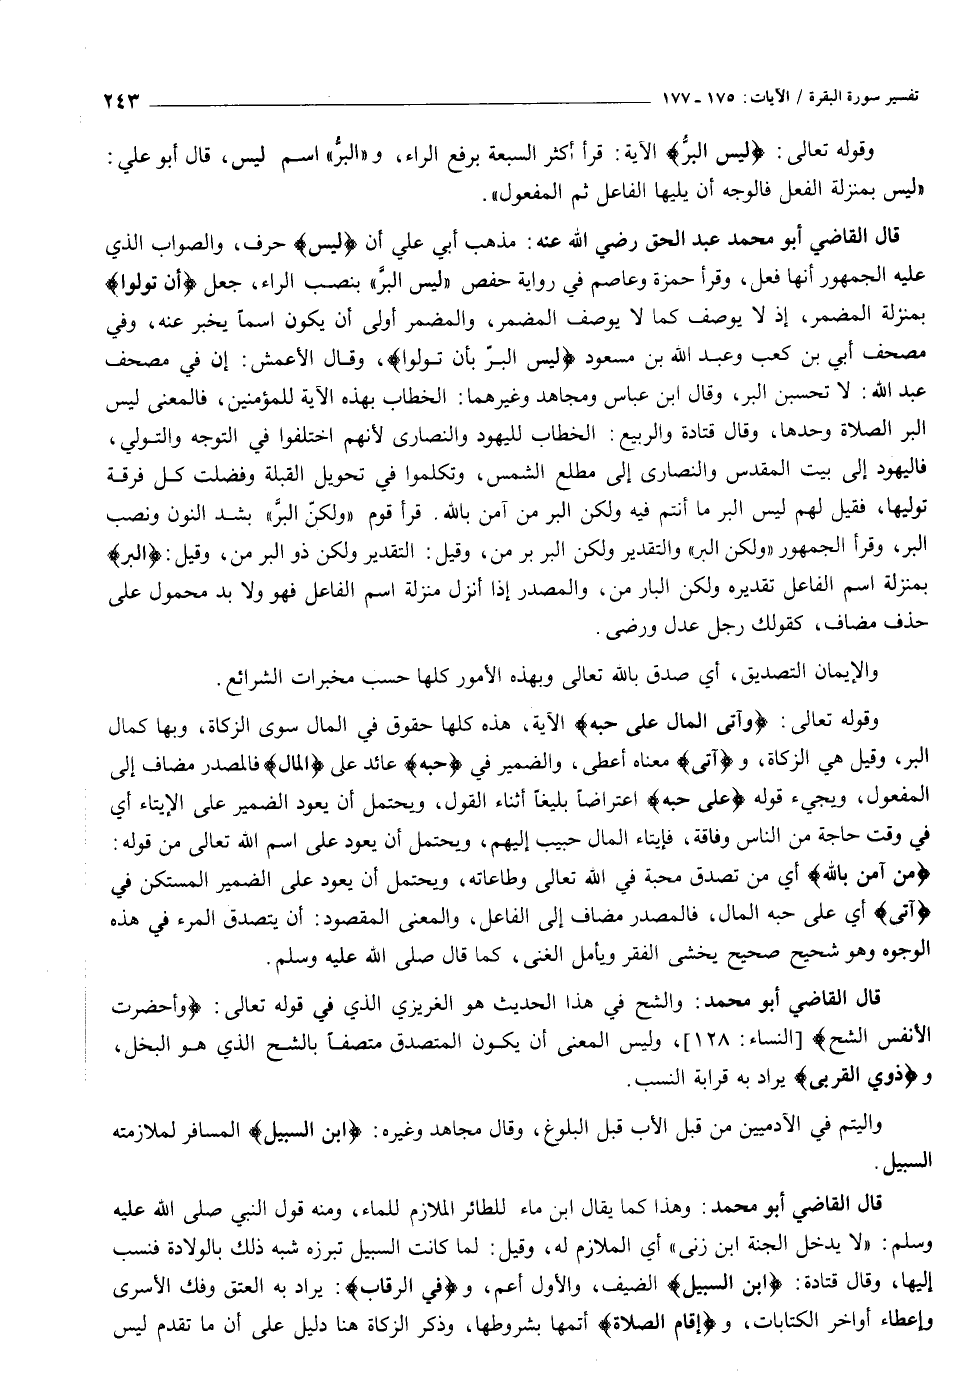 تفسير سورة البقرة / الآيات: ١٧٥ ـ ١٧٧ ٢٤٣
وقوله تعالى: ﴿ليس البرُّ﴾ الآية: قرأ أكثر السبعة برفع الراء، و «البرُّ» اسم ليس، قال أبو علي:
«ليس بمنزلة الفعل فالوجه أن يليها الفاعل ثم المفعول».
قال القاضي أبو محمد عبد الحق رضي الله عنه: مذهب أبي علي أن ﴿ليس﴾ حرف، والصواب الذي
عليه الجمهور أنها فعل، وقرأ حمزة وعاصم في رواية حفص «ليس البرَّ» بنصب الراء، جعل ﴿أن تولوا﴾
بمنزلة المضمر، إذ لا يوصف كما لا يوصف المضمر، والمضمر أولى أن يكون اسماً يخبر عنه، وفي
مصحف أبي بن كعب وعبد الله بن مسعود ﴿ليس البرّ بأن تولوا﴾، وقال الأعمش: إن في مصحف
عبد الله: لا تحسبن البر، وقال ابن عباس ومجاهد وغيرهما: الخطاب بهذه الآية للمؤمنين، فالمعنى ليس
البر الصلاة وحدها، وقال قتادة والربيع: الخطاب لليهود والنصارى لأنهم اختلفوا في التوجه والتولي،
فاليهود إلى بيت المقدس والنصارى إلى مطلع الشمس، وتكلموا في تحويل القبلة وفضلت كل فرقة
توليها، فقيل لهم ليس البر ما أنتم فيه ولكن البر من آمن بالله. قرأ قوم «ولكنّ البرَّ» بشد النون ونصب
البر، وقرأ الجمهور «ولكن البر» والتقدير ولكن البر بر من، وقيل: التقدير ولكن ذو البر من، وقيل: ﴿البر﴾
بمنزلة اسم الفاعل تقديره ولكن البار من، والمصدر إذا أنزل منزلة اسم الفاعل فهو ولا بد محمول على
حذف مضاف، كقولك رجل عدل ورضى.
والإيمان التصديق، أي صدق بالله تعالى وبهذه الأمور كلها حسب مخبرات الشرائع.
وقوله تعالى: ﴿وآتى المال على حبه﴾ الآية، هذه كلها حقوق في المال سوى الزكاة، وبها كمال
البر، وقيل هي الزكاة، و ﴿آتى﴾ معناه أعطى، والضمير في ﴿حبه﴾ عائد على ﴿المال﴾ فالمصدر مضاف إلى
المفعول، ويجيء قوله ﴿على حبه﴾ اعتراضاً بليغاً أثناء القول، ويحتمل أن يعود الضمير على الإيتاء أي
في وقت حاجة من الناس وفاقة، فإيتاء المال حبيب إليهم، ويحتمل أن يعود على اسم الله تعالى من قوله:
﴿من آمن بالله﴾ أي من تصدق محبة في الله تعالى وطاعاته، ويحتمل أن يعود على الضمير المستكن في
﴿آتى﴾ أي على حبه المال، فالمصدر مضاف إلى الفاعل، والمعنى المقصود: أن يتصدق المرء في هذه
الوجوه وهو شحيح صحيح يخشى الفقر ويأمل الغنى، كما قال صلى الله عليه وسلم.
قال القاضي أبو محمد: والشح في هذا الحديث هو الغريزي الذي في قوله تعالى: ﴿وأحضرت
الأنفس الشح﴾ [النساء: ١٢٨]، وليس المعنى أن يكون المتصدق متصفاً بالشح الذي هو البخل،
و ﴿ذوي القربى﴾ يراد به قرابة النسب.
واليتم في الآدميين من قبل الأب قبل البلوغ، وقال مجاهد وغيره: ﴿ابن السبيل﴾ المسافر لملازمته
السبيل.
قال القاضي أبو محمد: وهذا كما يقال ابن ماء للطائر الملازم للماء، ومنه قول النبي صلى الله عليه
وسلم: «لا يدخل الجنة ابن زنى» أي الملازم له، وقيل: لما كانت السبيل تبرزه شبه ذلك بالولادة فنسب
إليها، وقال قتادة: ﴿ابن السبيل﴾ الضيف، والأول أعم، و﴿في الرقاب﴾: يراد به العتق وفك الأسرى
وإعطاء أواخر الكتابات، و ﴿إقام الصلاة﴾ أتمها بشروطها، وذكر الزكاة هنا دليل على أن ما تقدم ليس